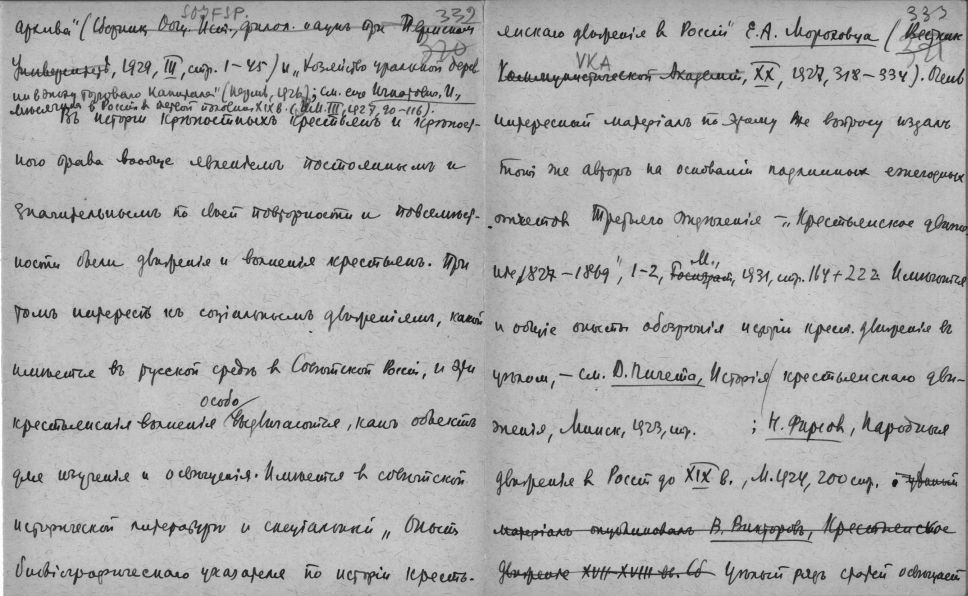 SOIFSP. 332
архива" (Сборник Общ. Ист., филол. наукъ при Пермском
320
Университетѣ, 1929, III, стр. 1-45) и „Хозяйство уральской
торговаго капитала" (Пермь, см. еще Игнатович, И.,
в Россіи в первой половинѣ XIX в. III, 1927, 90-116).
Въ исторіи крѣпостныхъ крестьянъ и крѣпост-
ного права вообще явленіемъ постояннымъ и
значительнымъ по своей повторности и повсемѣст-
ности были движенія и волненія крестьянъ. При
томъ интересѣ къ соціальнымъ движеніямъ, какой
имѣется въ русской средѣ в Совѣтской Россіи, и эти
особо
крестьянскія волненія выдвигаются, какъ объектъ
для изученія и освѣщенія. Имѣется в совѣтской
исторической литературѣ и спеціальный „Опытъ
библіографическаго указателя по исторіи кресть-
333
321
янскаго движенія в Россіи" Е.А. Мороховца (Вестник
VKA
Коммунистической Академіи, XX, 1927, 318-334). Очень
интересный матеріалъ по этому же вопросу издалъ
тотъ же авторъ на основаніи подлинныхъ ежегодныхъ
отчетов Третьяго Отдѣленія - „Крестьянское движе-
М.,
ніе 1827-1869", 1-2, Госиздат, 1931, стр. 164+222. Имѣются
и общіе опыты обозрѣнія исторіи крест. движенія в
цѣлом, - см. В. Пичета, Исторія крестьянскаго дви-
женія, Минск, 1923, стр. ; Н. Фирсов, Народныя
движенія в Россіи до XIX в., М. 1924, 200 стр. цѣнный
матеріалъ опубликовалъ В. Викторовъ, Крестьянское
движеніе XVII-XVIII вв. Сб Цѣлый рядъ статей освѣщаетъ